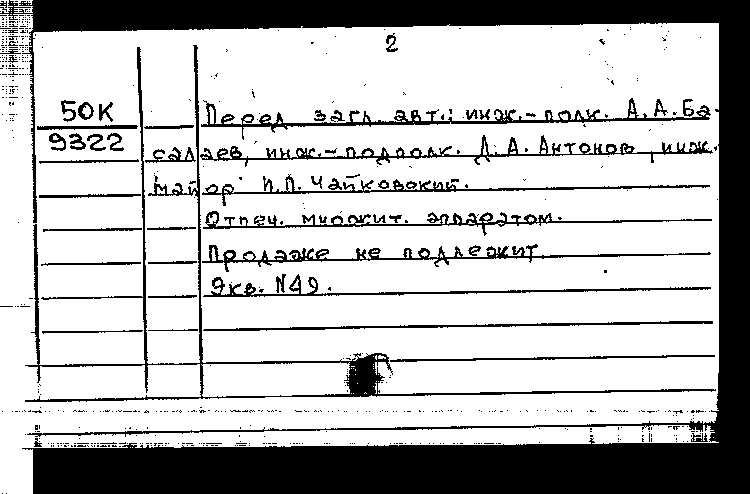 2
50К Перед загл. авт.: инж.-полк. А.А.Ба-
9322 салаев, инж.-подполк. Д.А.Антонов, инж.
майор П.П.Чайковский.
Отпеч. множит. аппаратом.
Продаже не подлежит
Экв. N49.